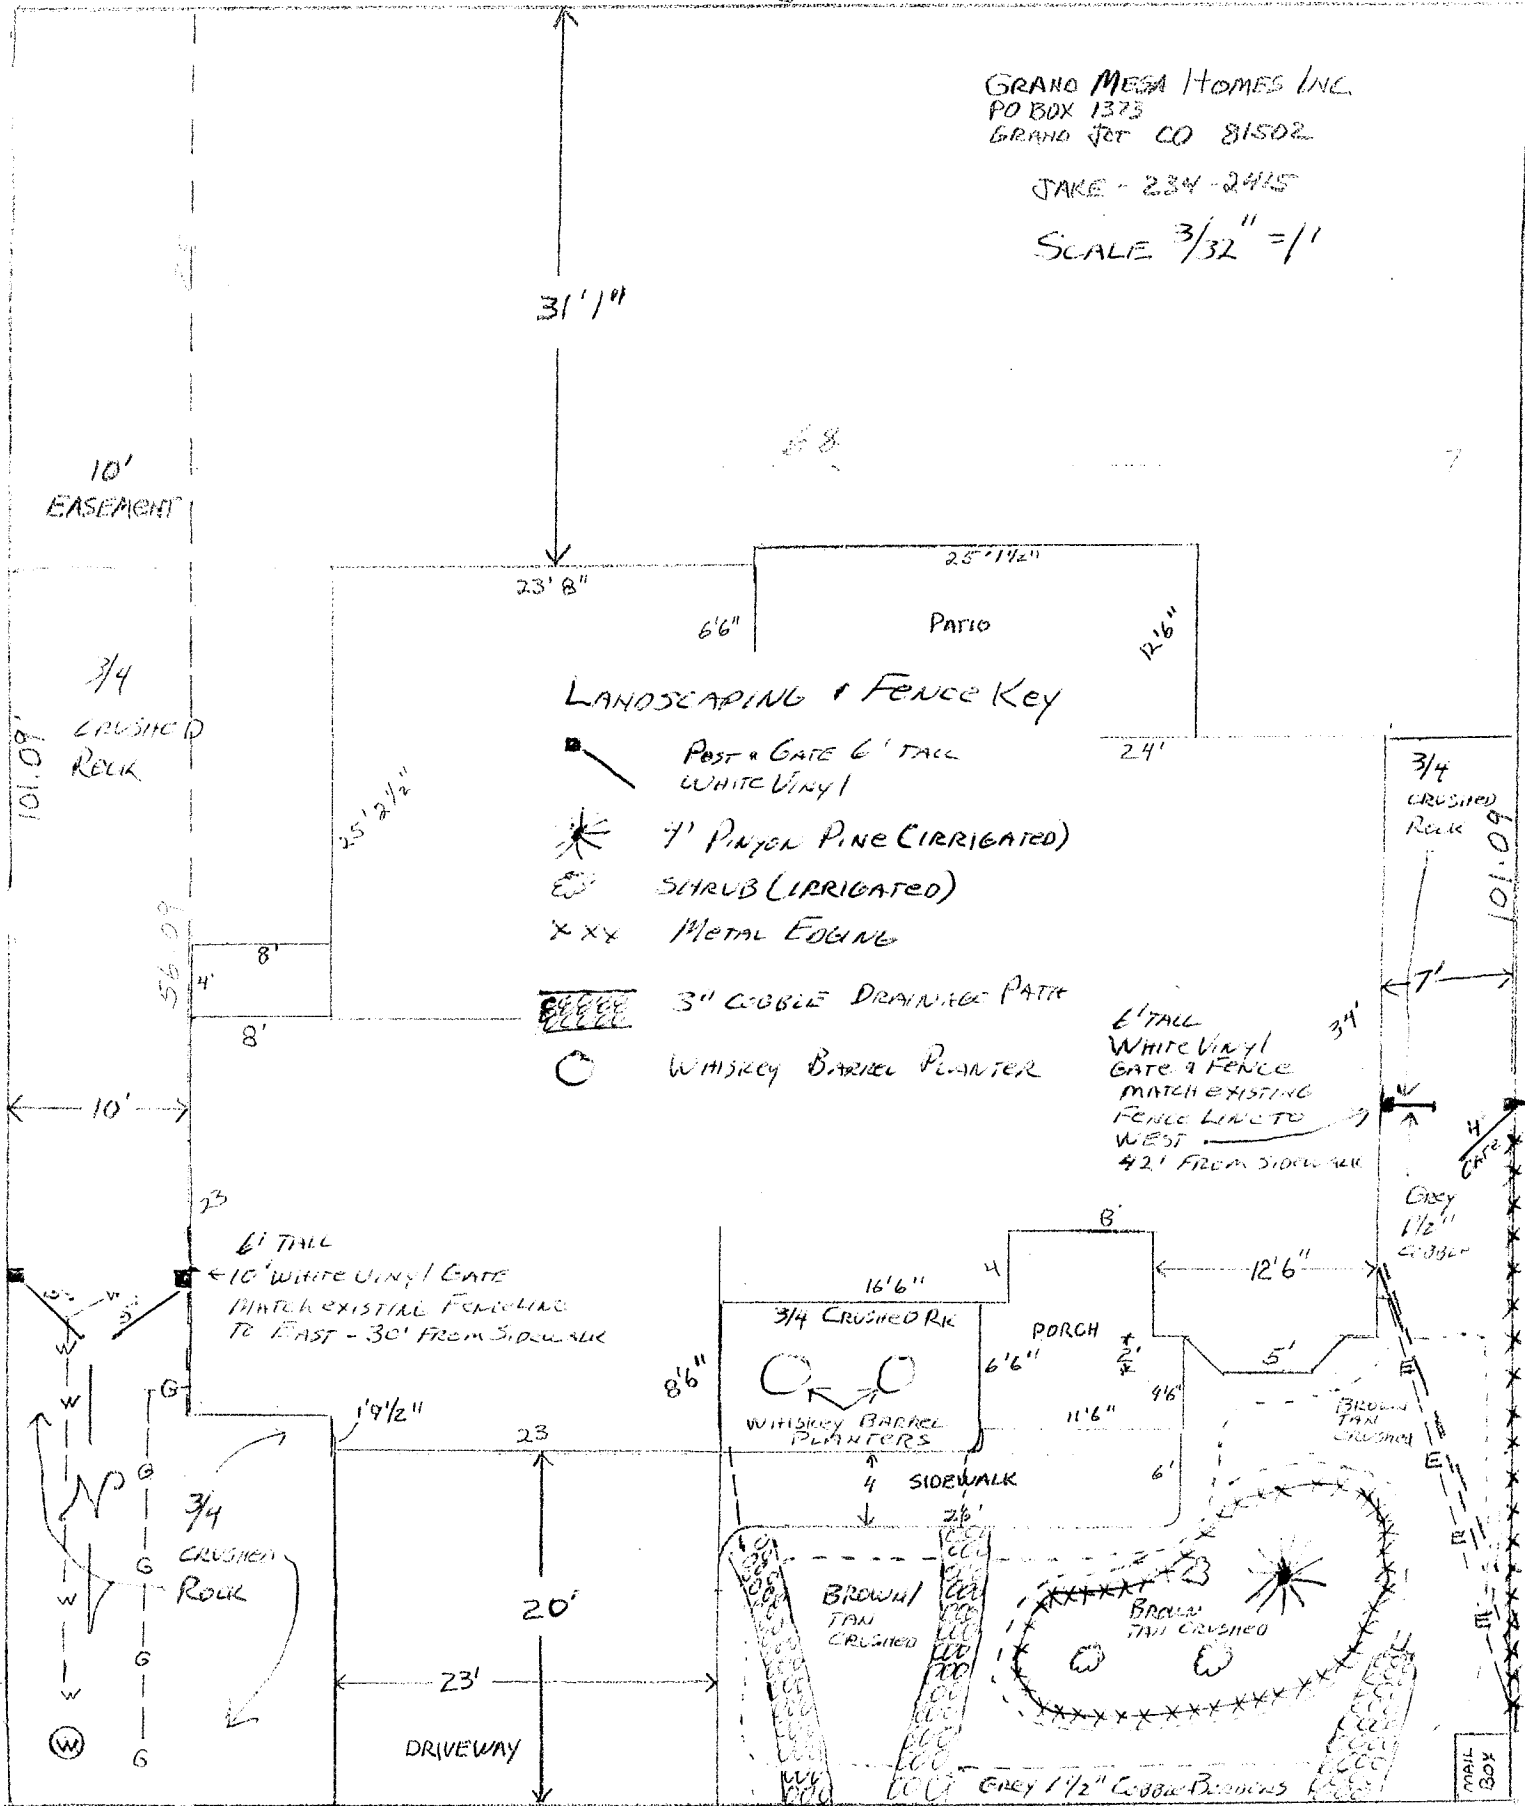 GRAND MESA HOMES INC.
PO BOX 1373
GRAND JCT CO 81502
JAKE - 234-2415
SCALE 3/32" = 1'
31'1"
68
7
10'
EASEMENT
23'8"
25'1½"
6'6"
PATIO
12'6"
3/4
CRUSHED
ROCK
101.09'
LANDSCAPING & FENCE KEY
POST & GATE 6' TALL
WHITE VINYL
4' PINYON PINE (IRRIGATED)
SHRUB (IRRIGATED)
XXX METAL EDGING
3" COBBLE DRAINAGE PATH
WHISKEY BARREL PLANTER
24'
3/4
CRUSHED
ROCK
101.09
25'2½"
56.09
8'
4'
8'
7'
34'
6' TALL
WHITE VINYL
GATE & FENCE
MATCH EXISTING
FENCE LINE TO
WEST
42' FROM SIDEWALK
4'
GATE
10'
23
GREY
1½"
COBBLE
6' TALL
10' WHITE VINYL GATE
MATCH EXISTING FENCELINE
TO EAST - 30' FROM SIDEWALK
5'
5'
8'
4
12'6"
16'6"
3/4 CRUSHED RK
PORCH
2'
5'
6'6"
8'6"
WHISKEY BARREL
PLANTERS
11'6"
4'6"
BROWN
TAN
CRUSHED
1'9½"
23
4
SIDEWALK
6'
26'
W
W
W
W
W
G
G
G
G
G
N
3/4
CRUSHED
ROCK
20'
23'
DRIVEWAY
BROWN/
TAN
CRUSHED
BROWN
TAN CRUSHED
E
E
E
E
GREY 1½" COBBLE BORDERS
MAIL
BOX